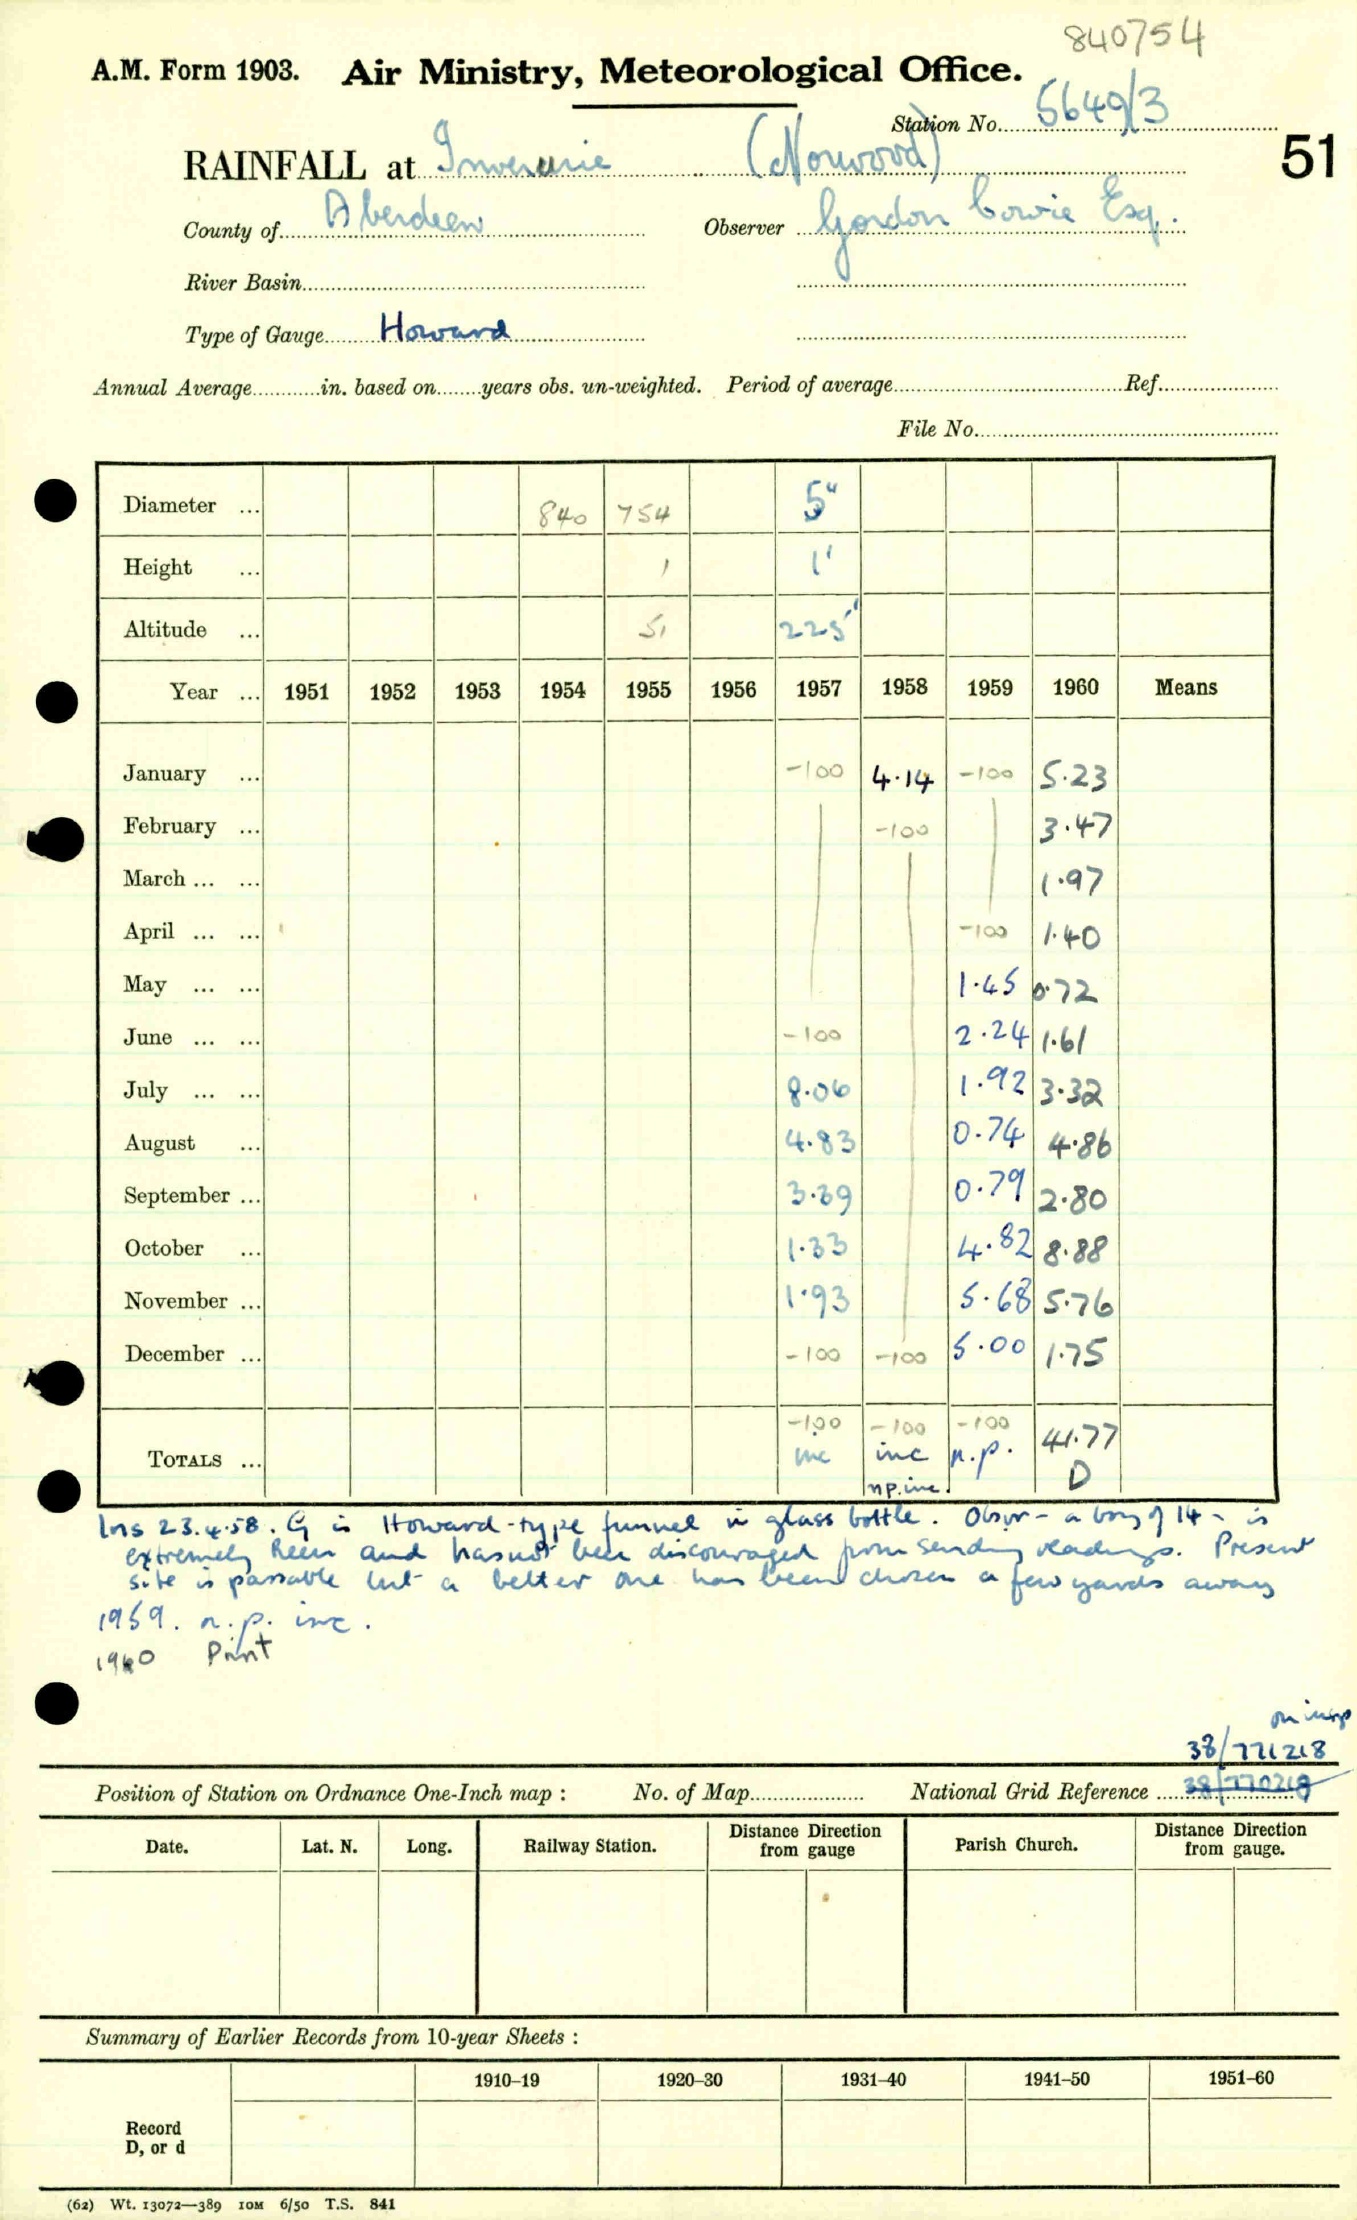 840754
A.M. Form 1903. Air Ministry, Meteorological Office.
Station No. 5649/3
51
RAINFALL at Inverurie (Norwood)
County of Aberdeen Observer Gordon Cowie Esq.
River Basin
Type of Gauge Howard
Annual Average in. based on years obs. un-weighted. Period of average Ref.
File No.
Diameter ... 840 754 5"
Height ... 1 1'
Altitude ... 51 225'
Year ... 1951 1952 1953 1954 1955 1956 1957 1958 1959 1960 Means
January ... -100 4.14 -100 5.23
February ... -100 3.47
March ... ... 1.97
April ... ... -100 1.40
May ... ... 1.45 0.72
June ... ... -100 2.24 1.61
July ... ... 8.06 1.92 3.32
August ... 4.83 0.74 4.86
September ... 3.39 0.79 2.80
October ... 1.33 4.82 8.88
November ... 1.93 5.68 5.76
December ... -100 -100 5.00 1.75
-100 -100 -100 41.77
TOTALS ... inc inc n.p. D
n.p. inc.
Ins 23.4.58. G is Howard-type funnel in glass bottle. Obsvr - a boy of 14 - is
extremely keen and has not been discouraged from sending readings. Present
site is passable but a better one has been chosen a few yards away
1959. n.p. inc.
1960 Print
on insp
38/771218
Position of Station on Ordnance One-Inch map : No. of Map National Grid Reference 38/770218
Date. Lat. N. Long. Railway Station. Distance Direction from gauge Parish Church. Distance Direction from gauge.
Summary of Earlier Records from 10-year Sheets :
1910–19 1920–30 1931–40 1941–50 1951–60
Record
D, or d
(62) Wt. 13072—389 10M 6/50 T.S. 841